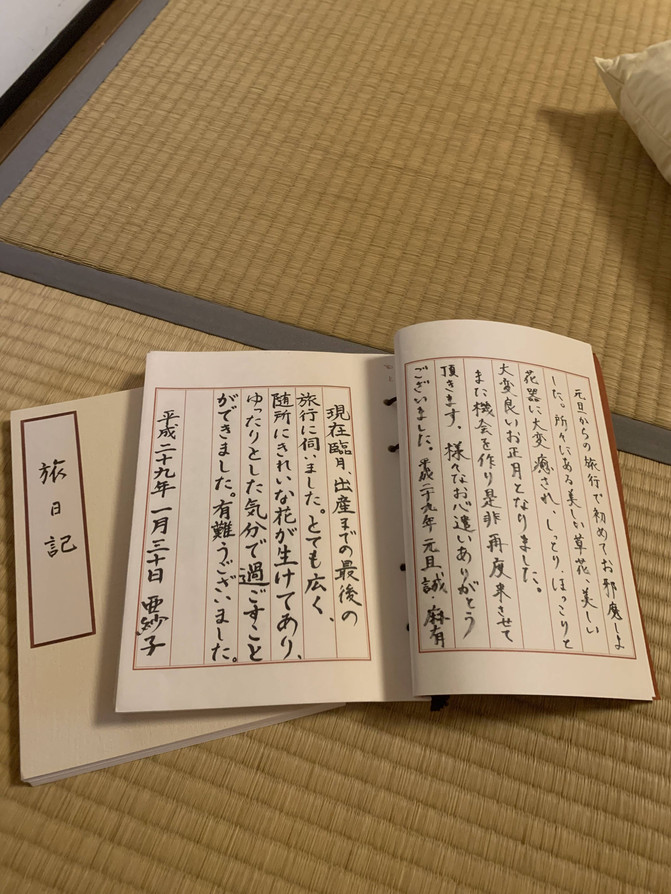 元旦からの旅行で初めてお邪魔しま
した。所々にある美しい草花、美しい
花器に大変癒され、しっとり、ほっこりと
大変良いお正月となりました。
また機会を作り是非再度来させて
頂きます。様々なお心遣いありがとう
ございました。平成二十九年 元旦 誠 麻有
現在臨月、出産までの最後の
旅行に伺いました。とても広く、
随所にきれいな花が生けてあり、
ゆったりとした気分で過ごすこと
ができました。有難うございました。
平成二十九年 一月三十日 亜紗子
旅日記